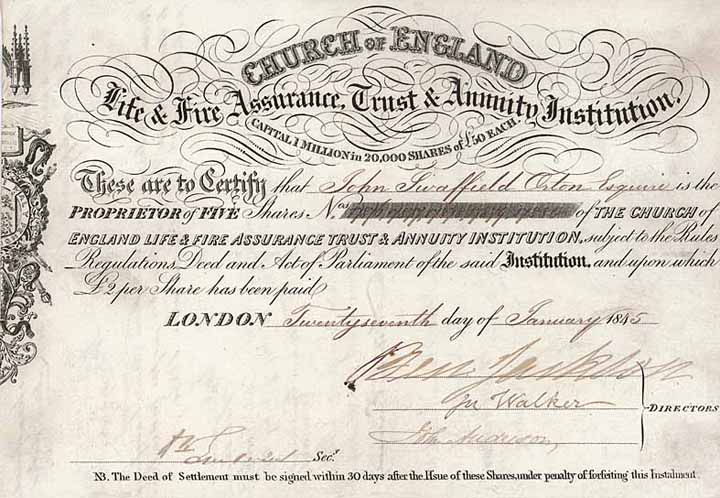 CHURCH OF ENGLAND
Life & Fire Assurance, Trust & Annuity Institution.
CAPITAL 1 MILLION in 20,000 SHARES of £50 EACH.
These are to Certify that John Swaffield Orton Esquire is the
PROPRIETOR of FIVE Shares Nos. of THE CHURCH of
ENGLAND LIFE & FIRE ASSURANCE TRUST & ANNUITY INSTITUTION, subject to the Rules
Regulations, Deed and Act of Parliament of the said Institution, and upon which
£2 per Share has been paid
LONDON Twentyseventh day of January 1845
Jn Walker
DIRECTORS
John
Secy.
NB. The Deed of Settlement must be signed within 30 days after the Issue of these Shares, under penalty of forfeiting this Instalment.